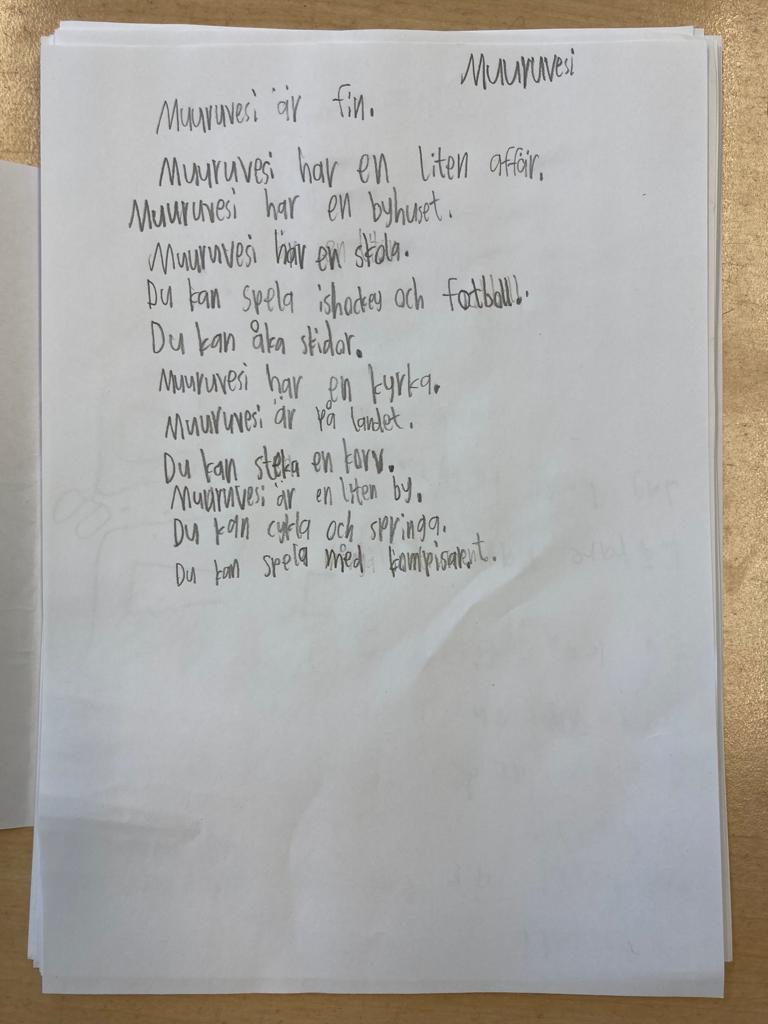 Muuruvesi
Muuruvesi är fin.
Muuruvesi har en liten affär.
Muuruvesi har en byhuset.
Muuruvesi har en skola.
Du kan spela ishockey och fotboll.
Du kan åka skidor.
Muuruvesi har en kyrka.
Muuruvesi är på landet.
Du kan steka en korv.
Muuruvesi är en liten by.
Du kan cykla och springa.
Du kan spela med